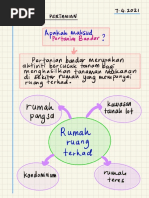 7.4.2021
PERTANIAN
Apakah maksud
Pertanian Bandar ?
Pertanian bandar merupakan
aktiviti bercucuk tanam bagi
menghasilkan tanaman makanan
di sekitar rumah yang mempunyai
ruang terhad.
rumah
pangsa
kawasan
tanah lot
Rumah
ruang
terhad
kondominium
rumah
teres